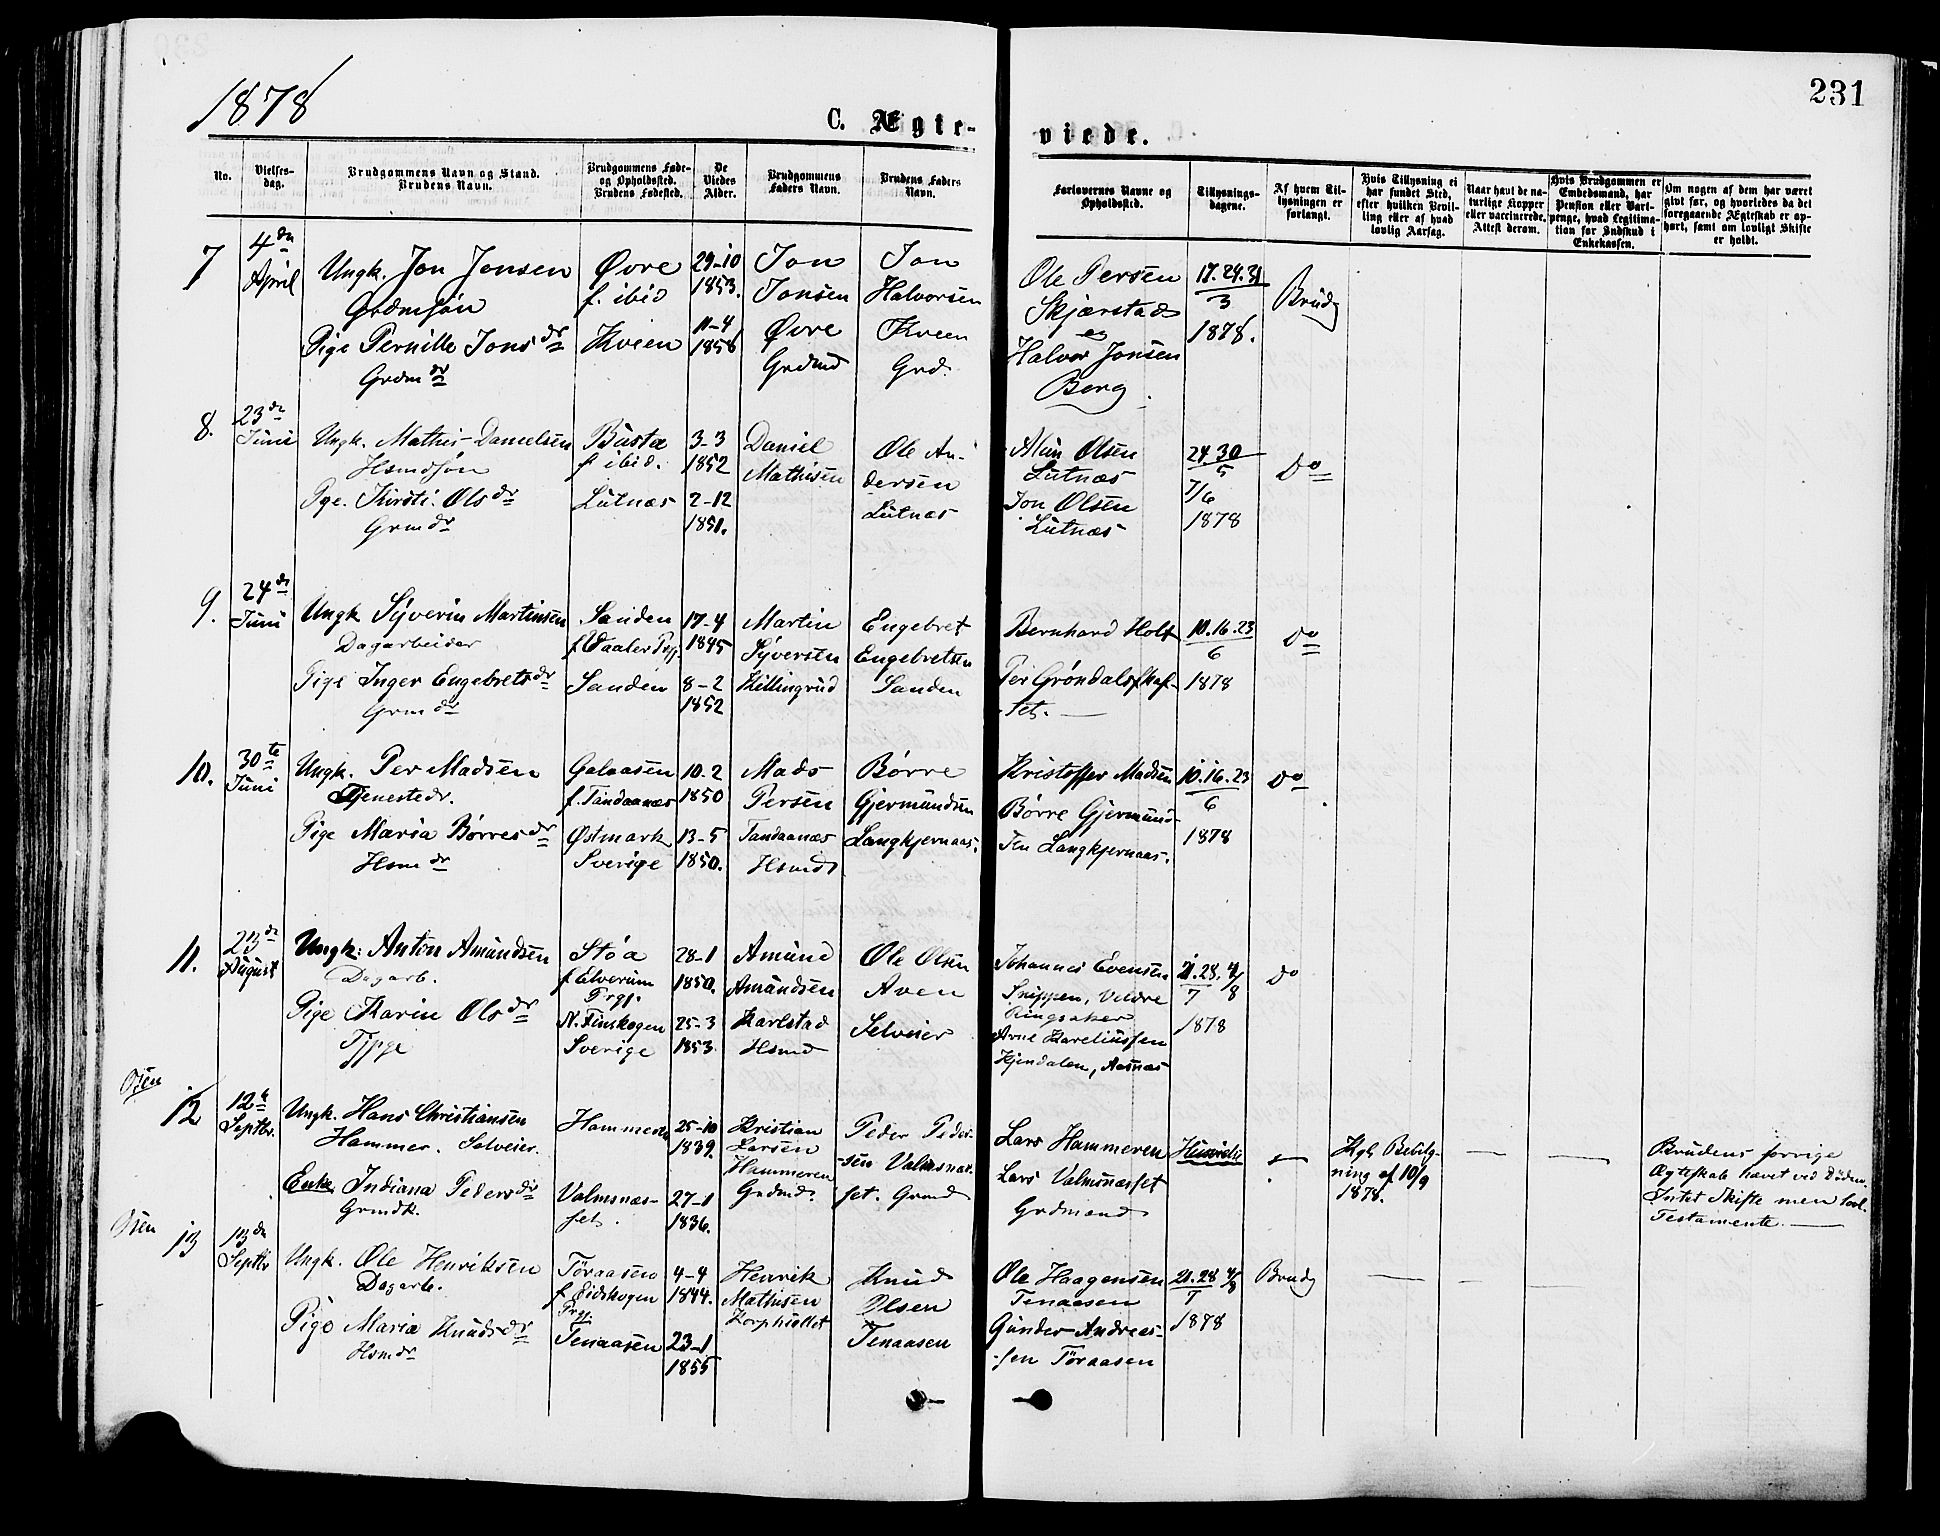 231
1878
C. Ægte-
viede.
No.
Vielses-
dag.
Brudgommens Navn og Stand.
Brudens Navn.
Brudgommens Føde-
og Opholdssted.
Brudens Fødested.
De
Viedes
Alder.
Brudgommens
Faders Navn.
Brudens Faders
Navn.
Forlovernes Navne og
Opholdssted.
Tillysnings-
dagene.
Af hvem Til-
lysningen er
forlangt.
Hvis Tillysning ei
har fundet Sted,
efter hvilken Bevil-
ling eller af hvad
lovlig Aarsag.
Naar havt de na-
turlige Kopper
eller vaccinerede.
Attest derom.
Hvis Brudgommen er
Embedsmand, har
Pension eller Vart-
penge, hvad Legitima-
tion for Indskud i
Enkekassen.
Om nogen af dem har været
gift før, og hvorledes da det
foregaaende Ægteskab er op-
hørt, samt om lovligt Skifte
er holdt.
7
4de
April
Ungk. Jon Jonsen
Grdmsøn
Pige Pernille Jonsdr
Grdmdr
Øvre
f. ibid
Kveen
29-10
1853.
11-4
1856
Jon
Jonsen
Øvre
Grdmd
Jon
Halvorsen
Kveen
Grd.
Ole Persen
Skjærstad
og
Halvor Jonsen
Berg
17.24.31
3
1878.
Brudg
8.
23de
Juni
Ungk. Mathis Danielsen
Hsmdsøn
Pge. Kirsti Olsdr
Grmdr
f ibid.
Lutnæs
3-3
1852
2-12
1851.
Daniel
Mathisen
Ole An-
dersen
Lutnæs
Olsen
Lutnæs
Jon Olsen
Lutnæs
24 30
5
7/6
1878
Do
9.
24de
Juni
Ungk Syverin Martinsen
Dagarbeider
Pige Inger Engebretsdr
Grmdr
Sanden
f. Vaaler Prgj.
Sanden
17-4
1845
8-2
1852
Martin
Syversen
Killingrud
Engebret
Engebretsen
Sanden
Bernhard Holt
Per Grøndalskaf-
tet.
10.16.23
6
1878
Do
10.
30te
Juni
Ungk. Per Madsen
Tjenestedr.
Pige Maria Børresdr
Hsmdr
Galaasen
f. Tandaanæs
Østmark
Sverige
10-2
1850
13-5
1850.
Mads
Persen
Tandaanæs
Hsmd
Børre
Gjermundsen
Langkjernaas.
Kristoffer Madsen
Børre Gjermund-
sen Langkjernaas.
10.16.23
6
1878
Do
11.
23de
August
Ungk: Anton Amundsen
Dagarb.
Pige Karin Olsdr
Tjpge
Støa
f. Elverum
Prgj.
N. Finskogen
Sverige
28-1
1850.
25-3
1853.
Amund
Amundsen
Karlstad
Hsmd
Ole Olsen
Aven
Selveier
Johannes Evensen
Snippen, Veldre
Ringsaker
Arne Kareliussen
Kjendalen, Aasnæs
21.28. 4/8
7
1878
Do
Osen
12
12te
Septbr.
Ungk. Hans Christiansen
Hammer. Selveier.
Enke Indiana Pedersdr
Grmdk.
Hammeren
Valmsnæs-
set.
25-10
1839.
27-1
1836.
Kristian
Larsen
Hammeren
Grdmd.
Peder Peder-
sen Valmsnæs-
set. Grmd
Lars Hammeren
Lars Valmsnæsset
Grdmænd
Kgl. Bevilg-
ning af 10/9
1878.
Brudens forrige
Ægteskab hævet ved Døden.
Intet Skifte men lovl.
Testamente.
Osen
13
13de
Septbr
Ungk. Ole Henriksen
Dagarb.
Pige Maria Knudsdr
Hsmdr
Tøraasen
f. Eidskogen
Prgj.
Tenaasen
4-4
1844.
23-1
1855
Henrik
Mathisen
Knud
Olsen
Tenaasen
Ole Haagensen
Tenaasen
Gunder Andreas-
sen Tøraasen
21.28 4/8
7
1878
Brudg